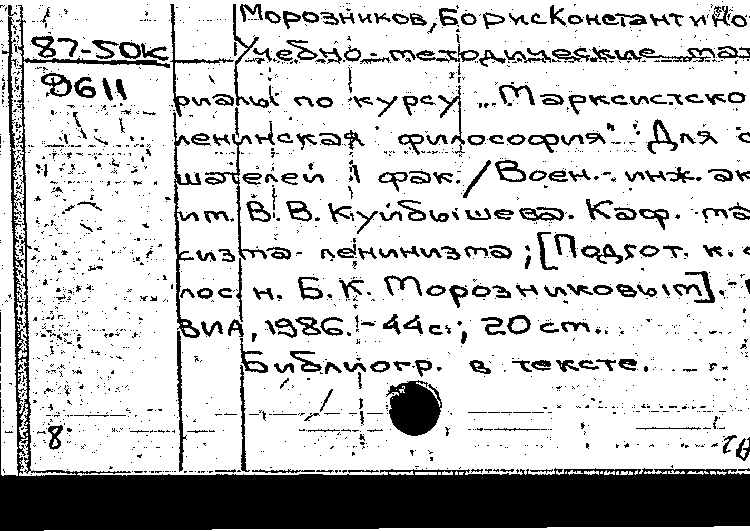 Морозников, Борис Константино
87-50к Учебно-методические мат
D611
риалы по курсу „Марксистско
ленинская философия". Для с
шателей 1 фак. / Воен.-инж. ак
им. В.В. Куйбышева. Каф. ма
сизма-ленинизма; [Подгот. к. ф
лос. н. Б.К. Морозниковым]. -
ВИА, 1986. - 44 с.; 20 см.
Библиогр. в тексте.
8